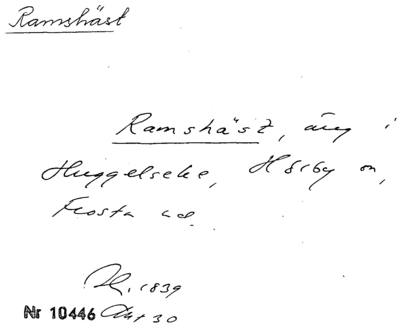 Ramshäst
Ramshäst, äng i
Huggelseke, Hörby sn,
Frosta hd.
1839
Nr 10446 Akt 30